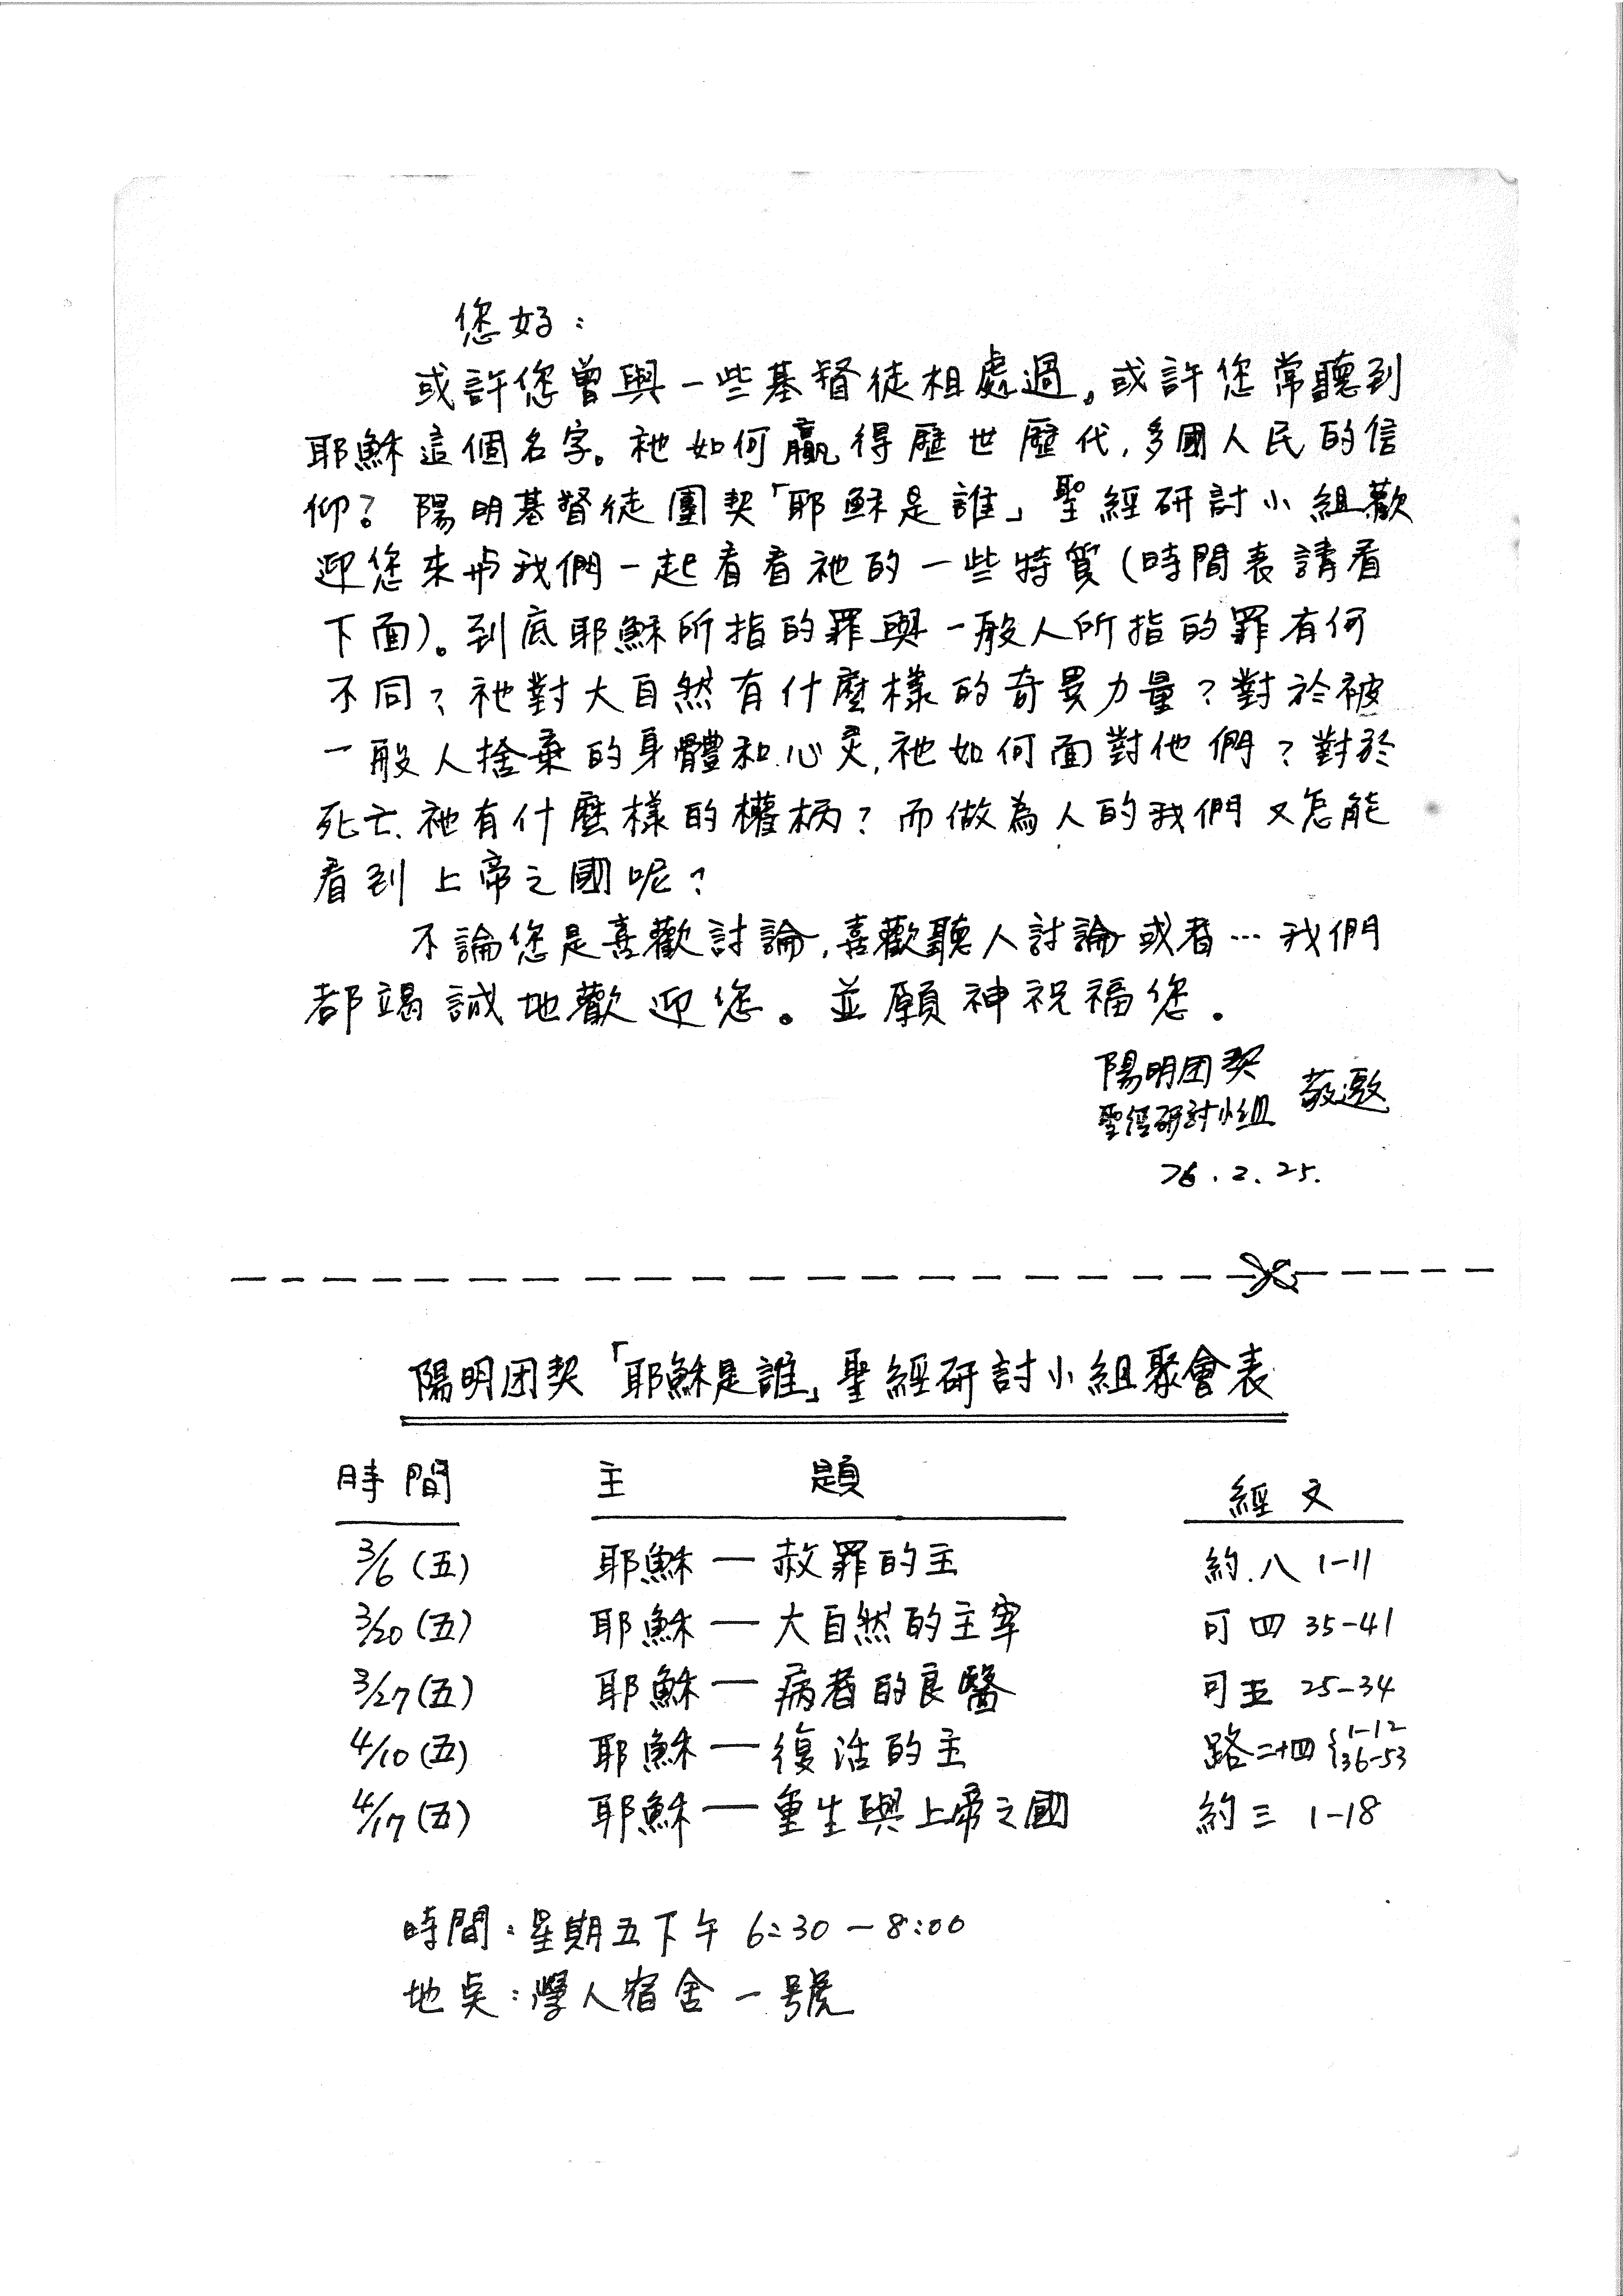 您好：
或許您曾與一些基督徒相處過。或許您常聽到
耶穌這個名字。祂如何贏得歷世歷代，多國人民的信
仰？陽明基督徒團契「耶穌是誰」聖經研討小組歡
迎您來与我們一起看看祂的一些特質(時間表請看
下面)。到底耶穌所指的罪與一般人所指的罪有何
不同？祂對大自然有什麼樣的奇異力量？對於被
一般人捨棄的身體和心灵，祂如何面對他們？對於
死亡、祂有什麼樣的權柄？而做為人的我們又怎能
看到上帝之國呢？
不論您是喜歡討論，喜歡聽人討論或者…我們
都竭誠地歡迎您。並願神祝福您。
陽明团契
聖經研討小組 敬邀
76.2.25.
陽明团契「耶穌是誰」聖經研討小組聚會表
時間 主題 經文
3/6(五) 耶穌—赦罪的主 約.八 1-11
3/20(五) 耶穌—大自然的主宰 可四 35-41
3/27(五) 耶穌—病者的良醫 可五 25-34
4/10(五) 耶穌—復活的主 路二十四{1-12 36-53
4/17(五) 耶穌—重生與上帝之國 約三 1-18
時間：星期五下午 6:30-8:00
地奌：學人宿舍一號